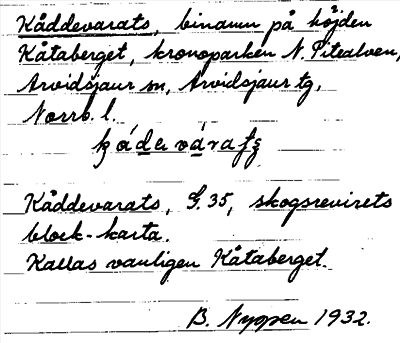 Kåddevarats, binamn på höjden
Kåtaberget, kronoparken N. Pitealven,
Arvidsjaur sn, Arvidsjaur tg,
Norrb. l.
Kåddevarats, S. 35, skogsrevirets
block-karta.
Kallas vanligen Kåtaberget.
B. Nyppen 1932.